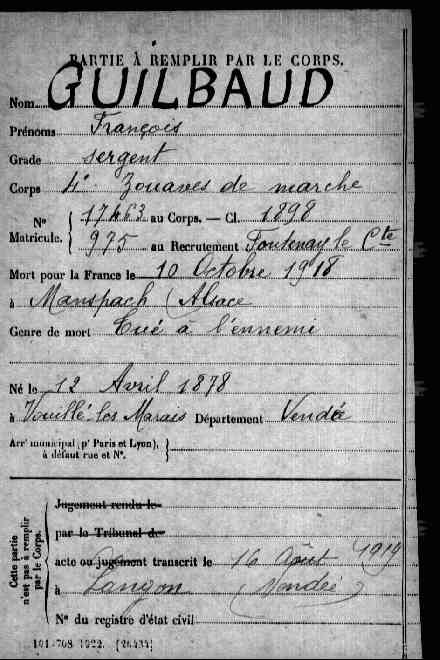 PARTIE À REMPLIR PAR LE CORPS.
Nom GUILBAUD
Prénoms François
Grade sergent
Corps 4e Zouaves de marche
N° Matricule. { 17463 au Corps. — Cl. 1898
975 au Recrutement Fontenay le Cte
Mort pour la France le 10 Octobre 1918
à Manspach (Alsace
Genre de mort Tué à l'ennemi
Né le 12 Avril 1878
à Vouillé-les Marais Département Vendée
Arrt municipal (pr Paris et Lyon), à défaut rue et N°. }
Cette partie n'est pas à remplir par le Corps.
Jugement rendu le
par le Tribunal de
acte ou jugement transcrit le 16 Août 1919
à Langon (Vendée)
N° du registre d'état civil
101-708 1922. [26434]